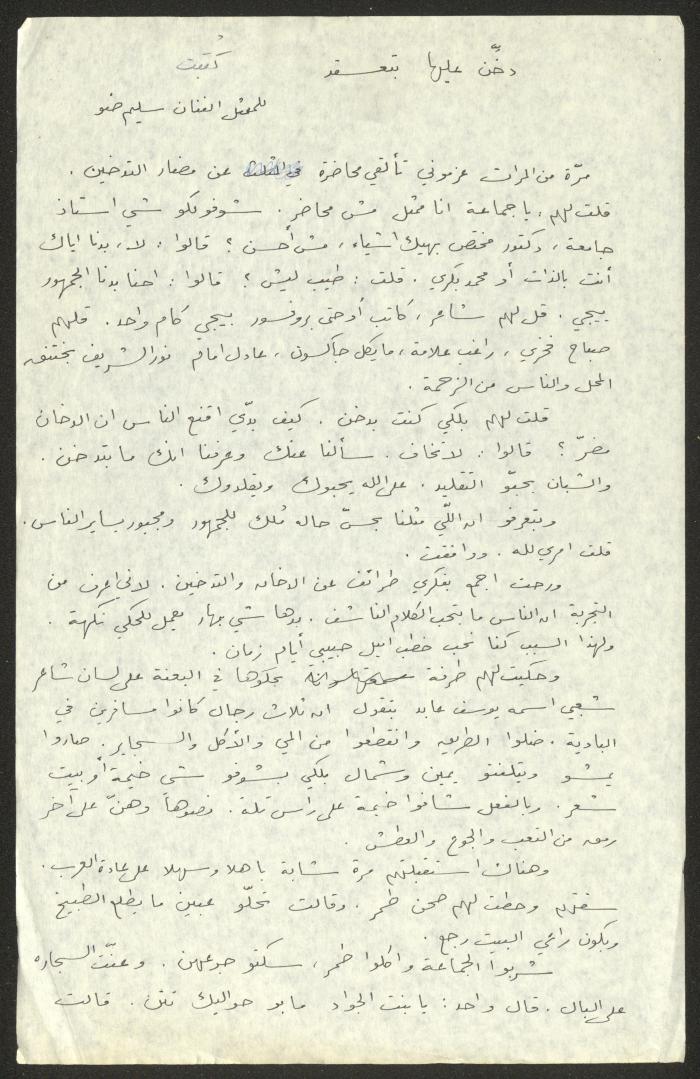 دخّن عليها بتعقد كُتبت
للممثل الفنان سليم ضو
مرّة من المرات عزموني تألقي محاضرة في عن مضار التدخين .
قلت لهم ، يا جماعة انا ممثل مش محاضر . شوفولكو شي استاذ
جامعة ، دكتور مختص بهيك اشياء ، مش أحسن ؟ قالوا : لا ، بدنا اياك
أنت بالذات أو محمد بكري . قلت : طيب ليش ؟ قالوا : احنا بدنا الجمهور
ييجي . قل لهم شاعر ، كاتب أو حتى بروفسور بييجي كام واحد . قلهم
صباح فخري ، راغب علامة ، مايكل جاكسون ، عادل امام نور الشريف بختنق
المحل والناس من الزحمة .
قلت لهم بلكي كنت بدخن . كيف بدّي اقنع الناس ان الدخان
مضرّ ؟ قالوا : لا تخاف . سألنا عنك وعرفنا انك ما بتدخن .
والشبان بحبّو التقليد . على الله يحبوك ويقلدوك .
وبتعرفو انه اللّي مثلنا بحسّ حاله مُلك للجمهور ومجبور يساير الناس .
قلت امري لله . ووافقت .
ورحت اجمع بفكري طرائف عن الدخان والتدخين . لاني اعرف من
التجربة ان الناس ما بتحب الكلام الناشف . بدها شي بهار يعمل للحكي نكهة .
ولهذا السبب كنا نحب خطب اميل حبيبي أيام زمان .
وحكيت لهم طرفة بحكوها في البعنة على لسان شاعر
شعبي اسمه يوسف عابد بتقول انه ثلاث رجال كانوا مسافرين في
البادية . ضلوا الطريق وانقطعوا من المي والأكل والسجاير . صاروا
يمشو ويتلفتو يمين وشمال بلكي بشوفو شي خيمة أو بيت
شعر . وبالفعل شافوا خيمة على راس تلة . نصوها وهنّ على آخر
رمق من التعب والجوع والعطش .
وهناك استقبلتهم مرة شابة يا هلا وسهلا على عادة العرب .
سقتهم وحطت لهم صحن طمر . وقالت تحلّو عبين ما يطلع الطبيخ
وبكون راعي البيت رجع .
شربوا الجماعة واكلوا طمر ، سكتو جوعهن . وعنّت السجاره
على البال . قال واحد : يا بنت الجواد ما بو حواليك تتن . قالت